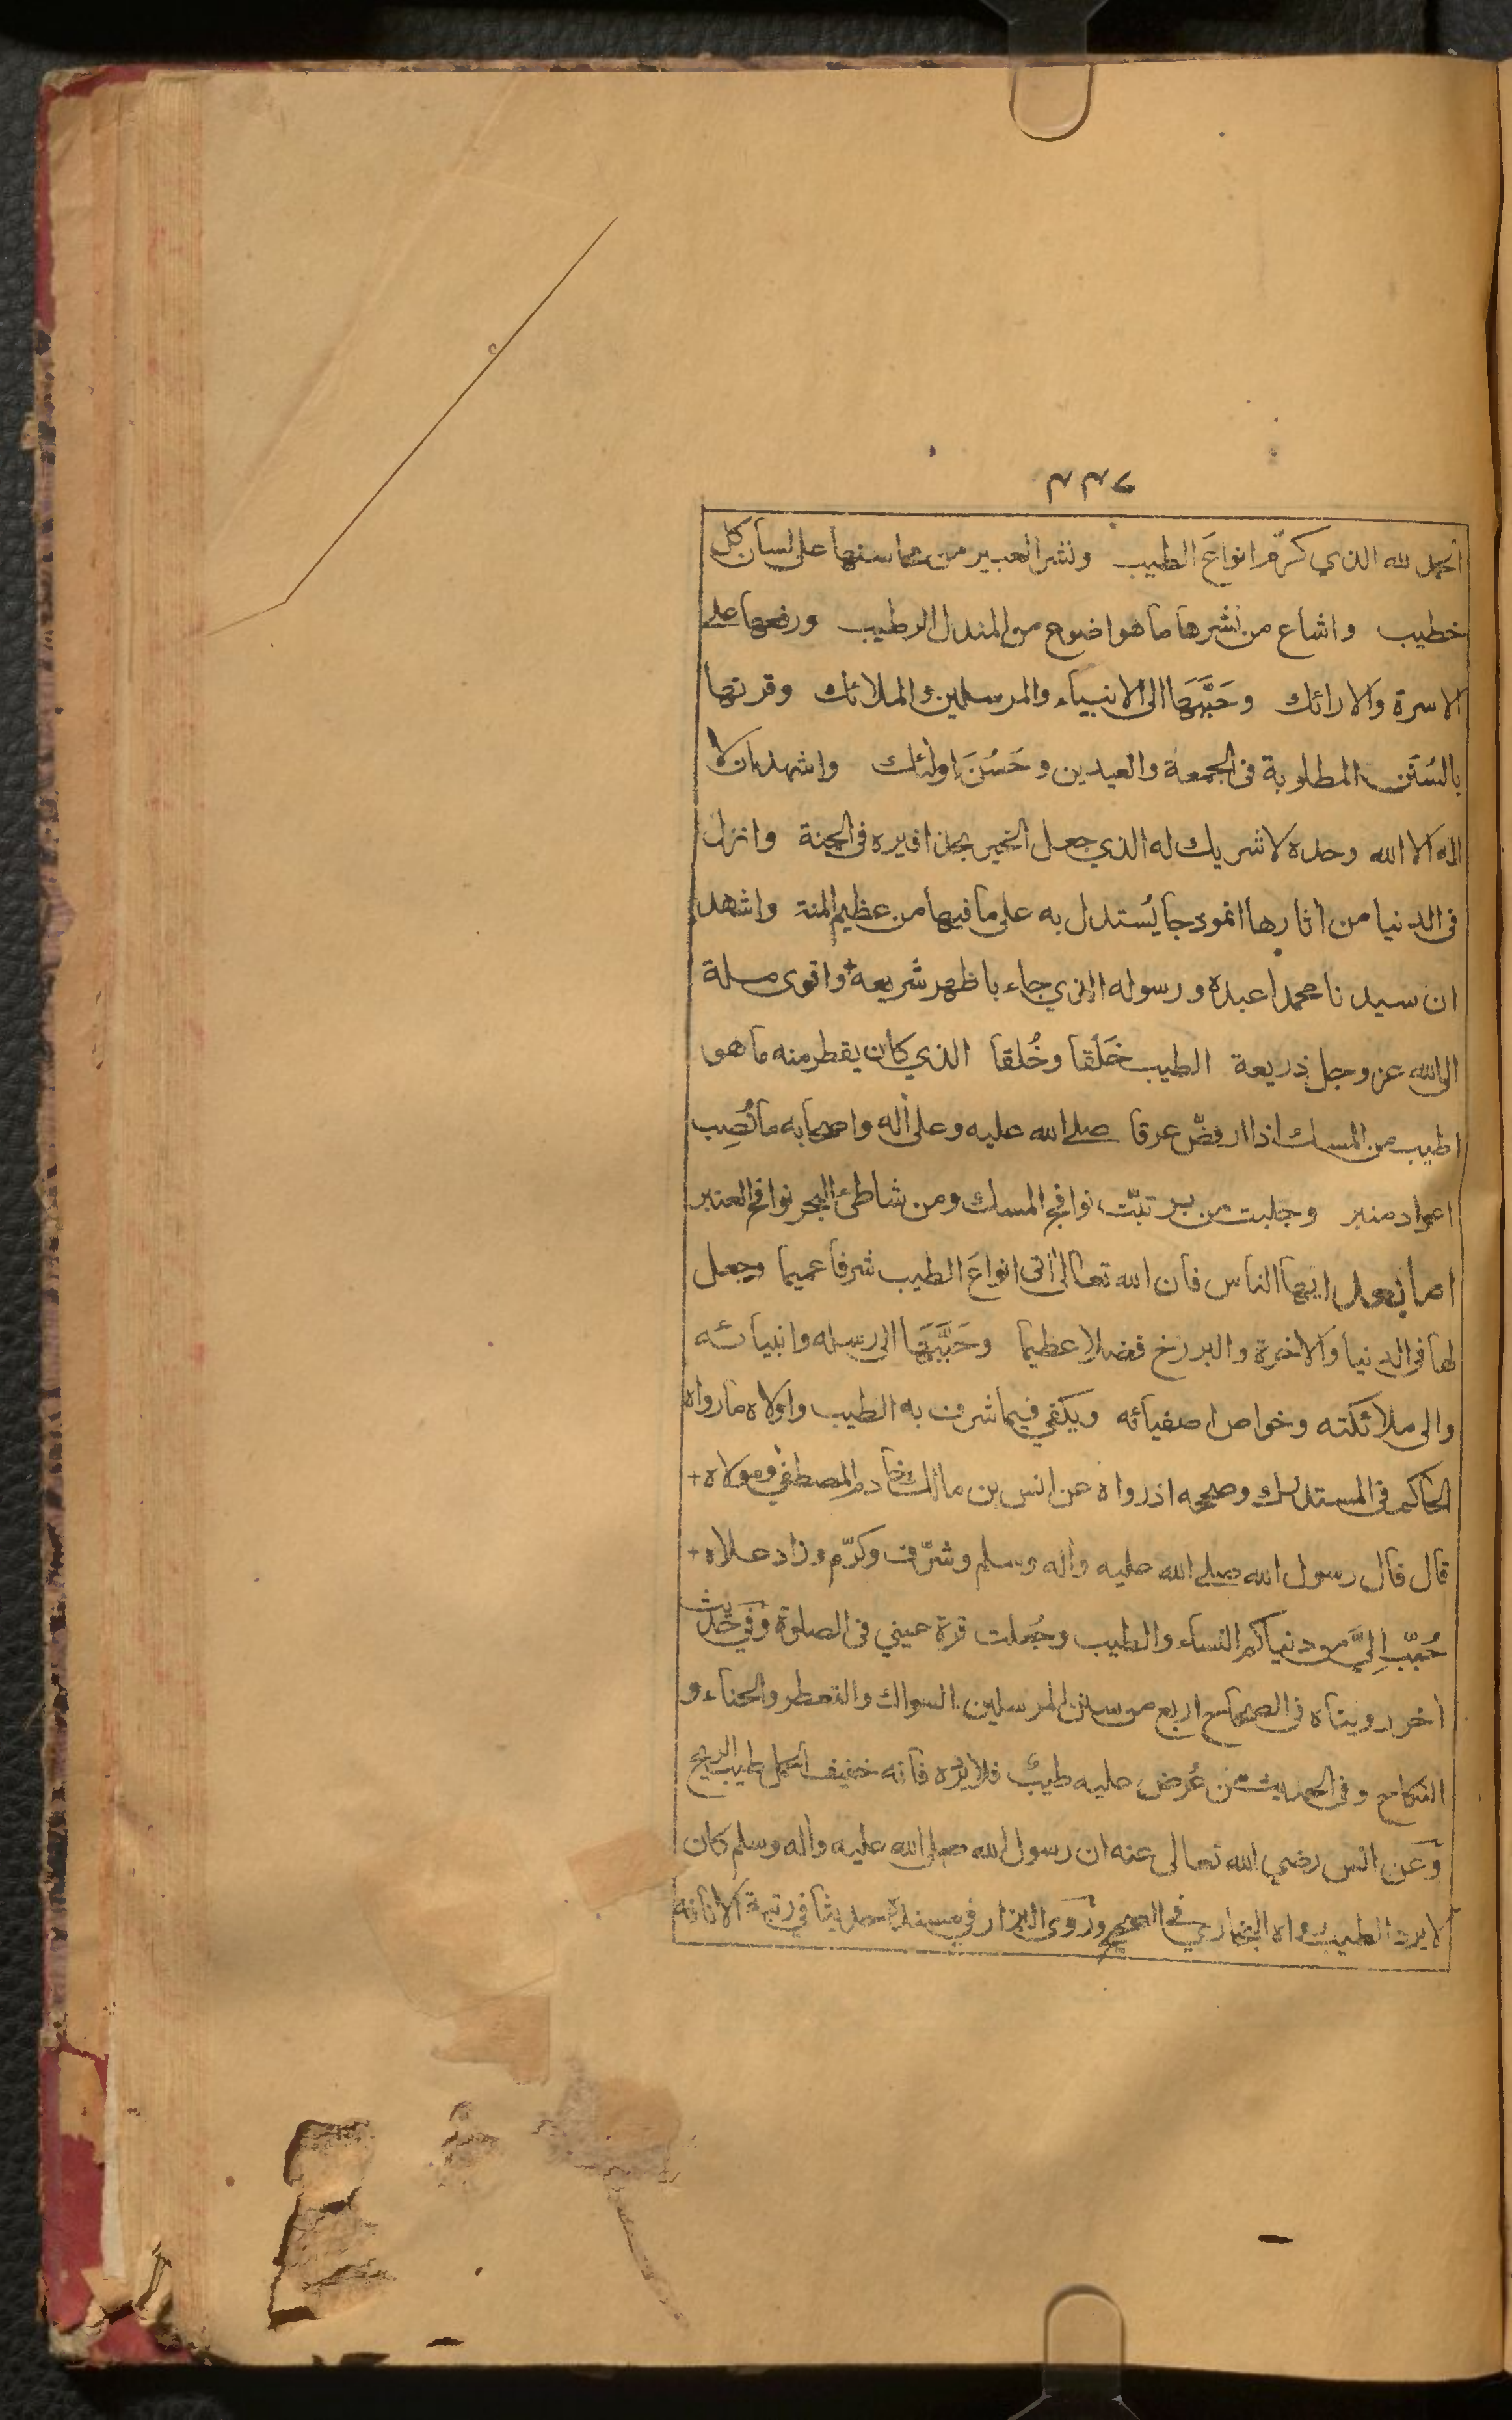 ٢٣٧
الحمد لله الذي كرّم انواعَ الطيب ونشر العبير من محاسنها على لسان كل
خطيب واشاع من نشرها ما هو اضوع من المندل الرطيب ورفعها على
الاسرة والارائك وحَبَّبَها الى الانبياء والمرسلين والملائك وقرنها
بالسُنَن المطلوبة فى الجمعة والعيدين وحَسُنَ اولئك واشهد ان لا
اله الا الله وحده لا شريك له الذي جعل الخير بحذافيره فى الجنة وانزل
فى الدنيا من اثارها انموذجا يُستدل به على ما فيها من عظيم المنة واشهد
ان سيدنا محمدا عبده ورسوله الذي جاء باظهر شريعة واقوى ملة
الى الله عز وجل ذريعة الطيب خَلقا وخُلقا الذي كان يقطر منه ما هو
اطيب من المسك اذا ارفضّ عرقا صلى الله عليه وعلى أله واصحابه ما نُصِب
اعواد منبر وجلبت من بر تبّت نوافج المسك ومن شاطئ البحر نوافح العنبر
اما بعد ايها الناس فان الله تعالى أتى انواعَ الطيب شرفا عميما وجعل
لها فى الدنيا والاخرة والبرزخ فضلا عظيما وحَبَّبَها الى رسله وانبيائه
والى ملائكته وخواص اصفيائه ويكفي فيما شرف به الطيب واولاه ما رواه
الحاكم فى المستدرك وصححه اذ رواه عن انس بن مالك خادم المصطفى ومولاه +
قال قال رسول الله صلى الله عليه وأله وسلم وشرّف وكرّم وزاد علاه +
حُبّب اِليَّ من دنياكم النساء والطيب وجُعلت قرة عيني فى الصلوة وفي حديث
اخر رويناه فى الصحاح اربع من سنن المرسلين السواك والتعطر والحناء و
النكاح وفى الحديث من عُرض عليه طيبٌ فلا يرده فانه خفيف المحمل طيب الريح
وعن انس رضي الله تعالى عنه ان رسول الله صلى الله عليه وأله وسلم كان
لا يرد الطيب رواه البخاري فى الصحيح وروى البزار في مسنده حديثا في رتبة